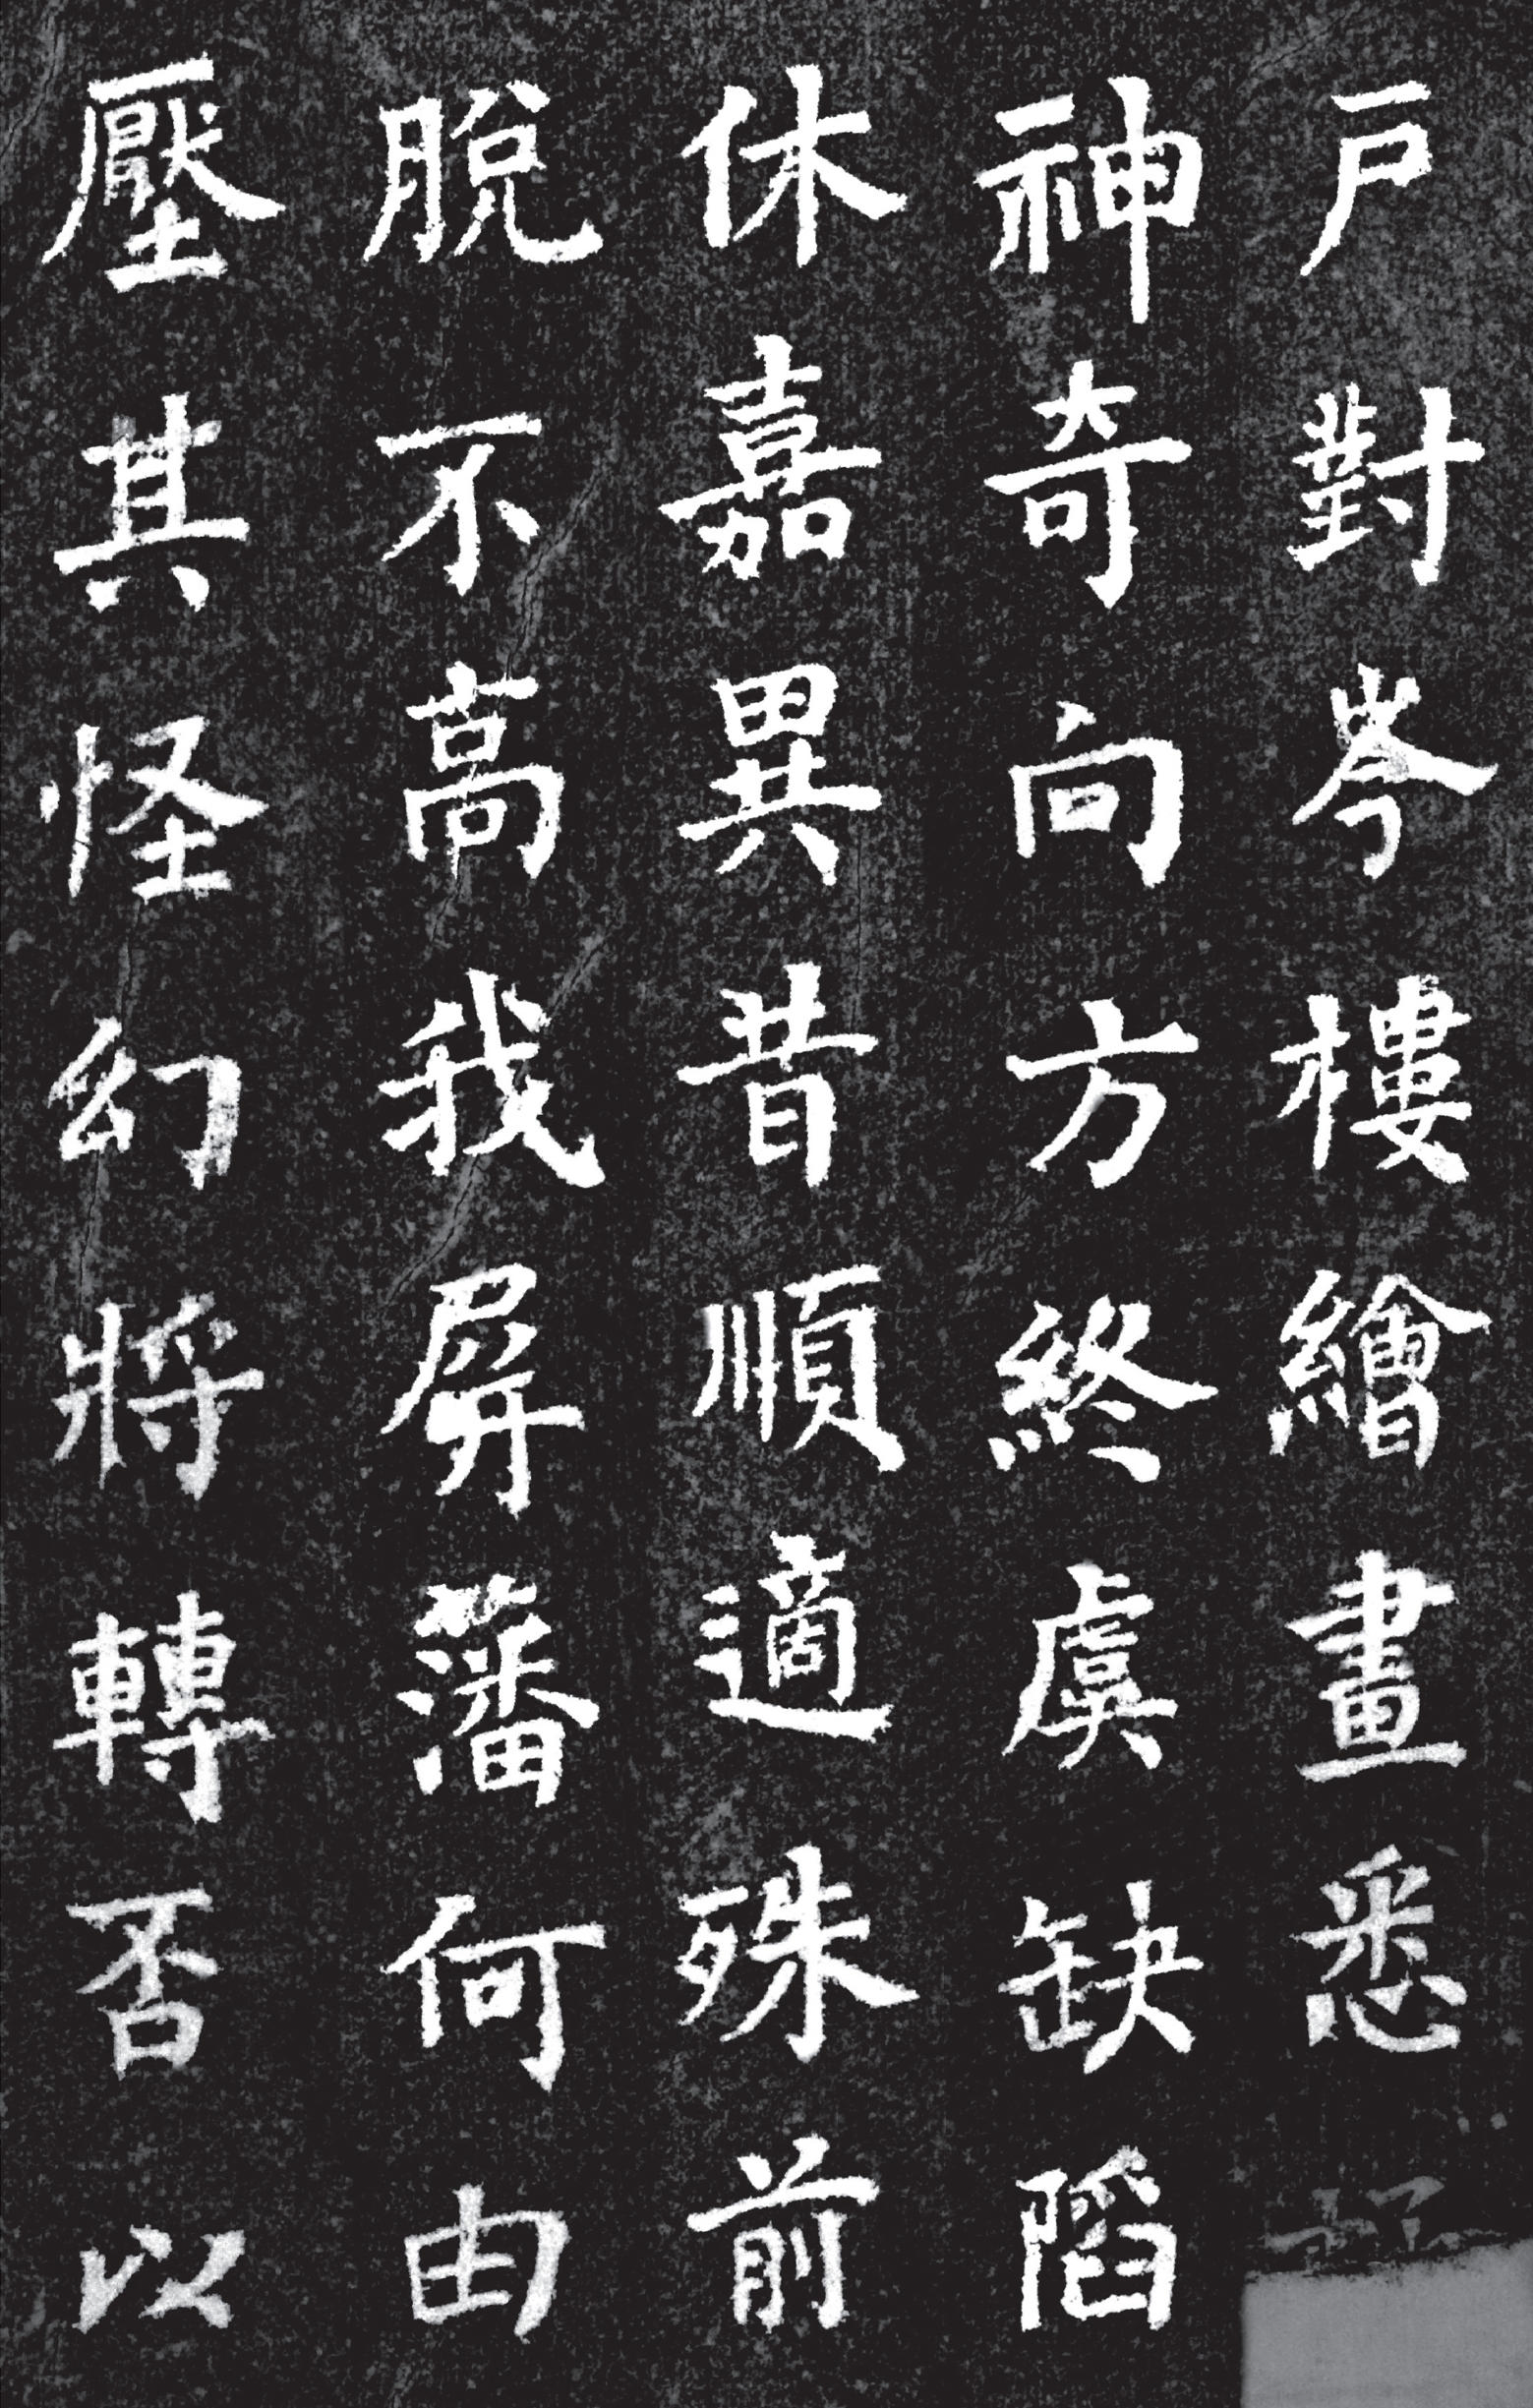 戶對岑樓繪畫悉
神奇向方終虞缺陷
休嘉異昔順適殊前
脫不高我屏藩何由
壓其怪幻將轉否以